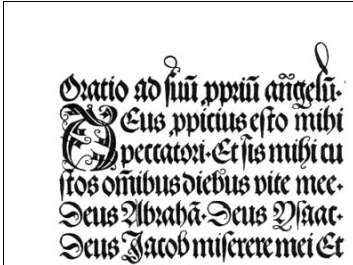 Oratio ad suū ꝓpriū angelū.
Deus ꝓpicius esto mihi
peccatori. Et sis mihi cu
stos om̄ibus diebus vite mee.
Deus Abrahā. Deus Ysaac.
Deus Jacob miserere mei Et